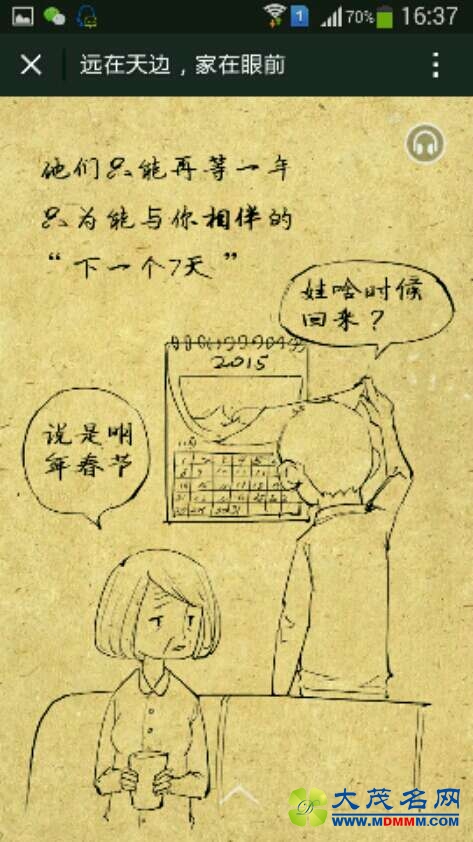 1
70%
16:37
远在天边，家在眼前
他们只能再等一年
只为能与你相伴的
“下一个7天”
娃啥时候
回来？
2015
说是明
年春节
大茂名网
WWW.MDMMM.COM